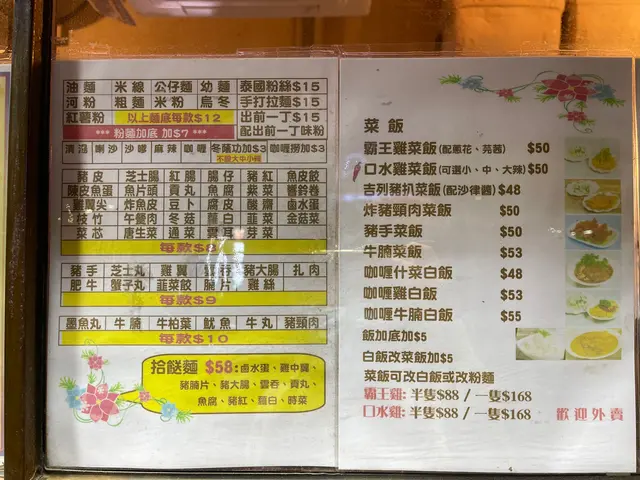 油麵 米線 公仔麵 幼麵 泰國粉絲$15
河粉 粗麵 米粉 烏冬 手打拉麵$15
紅薯粉 以上麵底每款$12 出前一丁$15
*** 粉麵加底 加$7 *** 配出前一丁味粉
清湯 喇沙 沙嗲 麻辣 咖喱 冬蔭功加$3 咖喱撈加$3
不設大牛小辣
豬皮 芝士腸 紅腸 腸仔 豬紅 魚皮餃
陳皮魚蛋 魚片頭 貢丸 魚腐 紫菜 響鈴卷
雞翼尖 炸魚皮 豆卜 腐皮 酸齋 鹵水蛋
枝竹 午餐肉 冬菇 蘿白 韮菜 金菇菜
菜芯 唐生菜 通菜 雲耳 芽菜
每款$8
豬手 芝士丸 雞翼 雲吞 豬大腸 扎肉
肥牛 蟹子丸 韮菜餃 腩片 雞絲
每款$9
墨魚丸 牛腩 牛柏葉 魷魚 牛丸 豬頸肉
每款$10
拾餸麵 $58:鹵水蛋、雞中翼、
豬腩片、豬大腸、雲吞、貢丸、
魚腐、豬紅、蘿白、時菜
菜飯
霸王雞菜飯(配蔥花、芫茜) $50
口水雞菜飯(可選小、中、大辣) $50
吉列豬扒菜飯(配沙律醬) $48
炸豬頸肉菜飯 $50
豬手菜飯 $50
牛腩菜飯 $53
咖喱什菜白飯 $48
咖喱雞白飯 $53
咖喱牛腩白飯 $55
飯加底加$5
白飯改菜飯加$5
菜飯可改白飯或改粉麵
霸王雞: 半隻$88 / 一隻$168
口水雞: 半隻$88 / 一隻$168 歡迎外賣